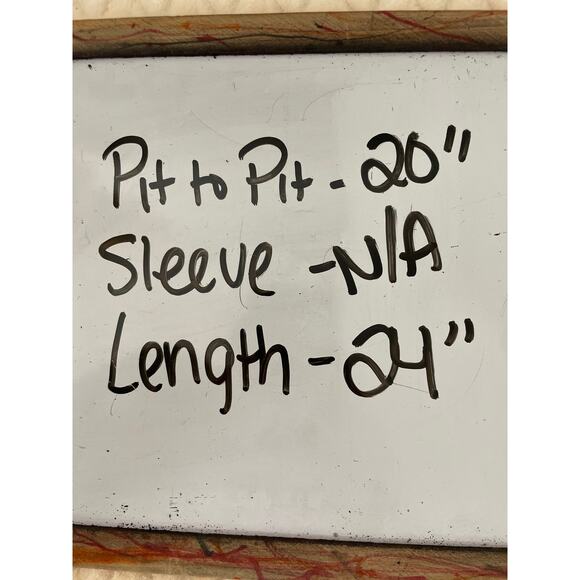 Pit to Pit - 20"
Sleeve - N/A
Length - 24"